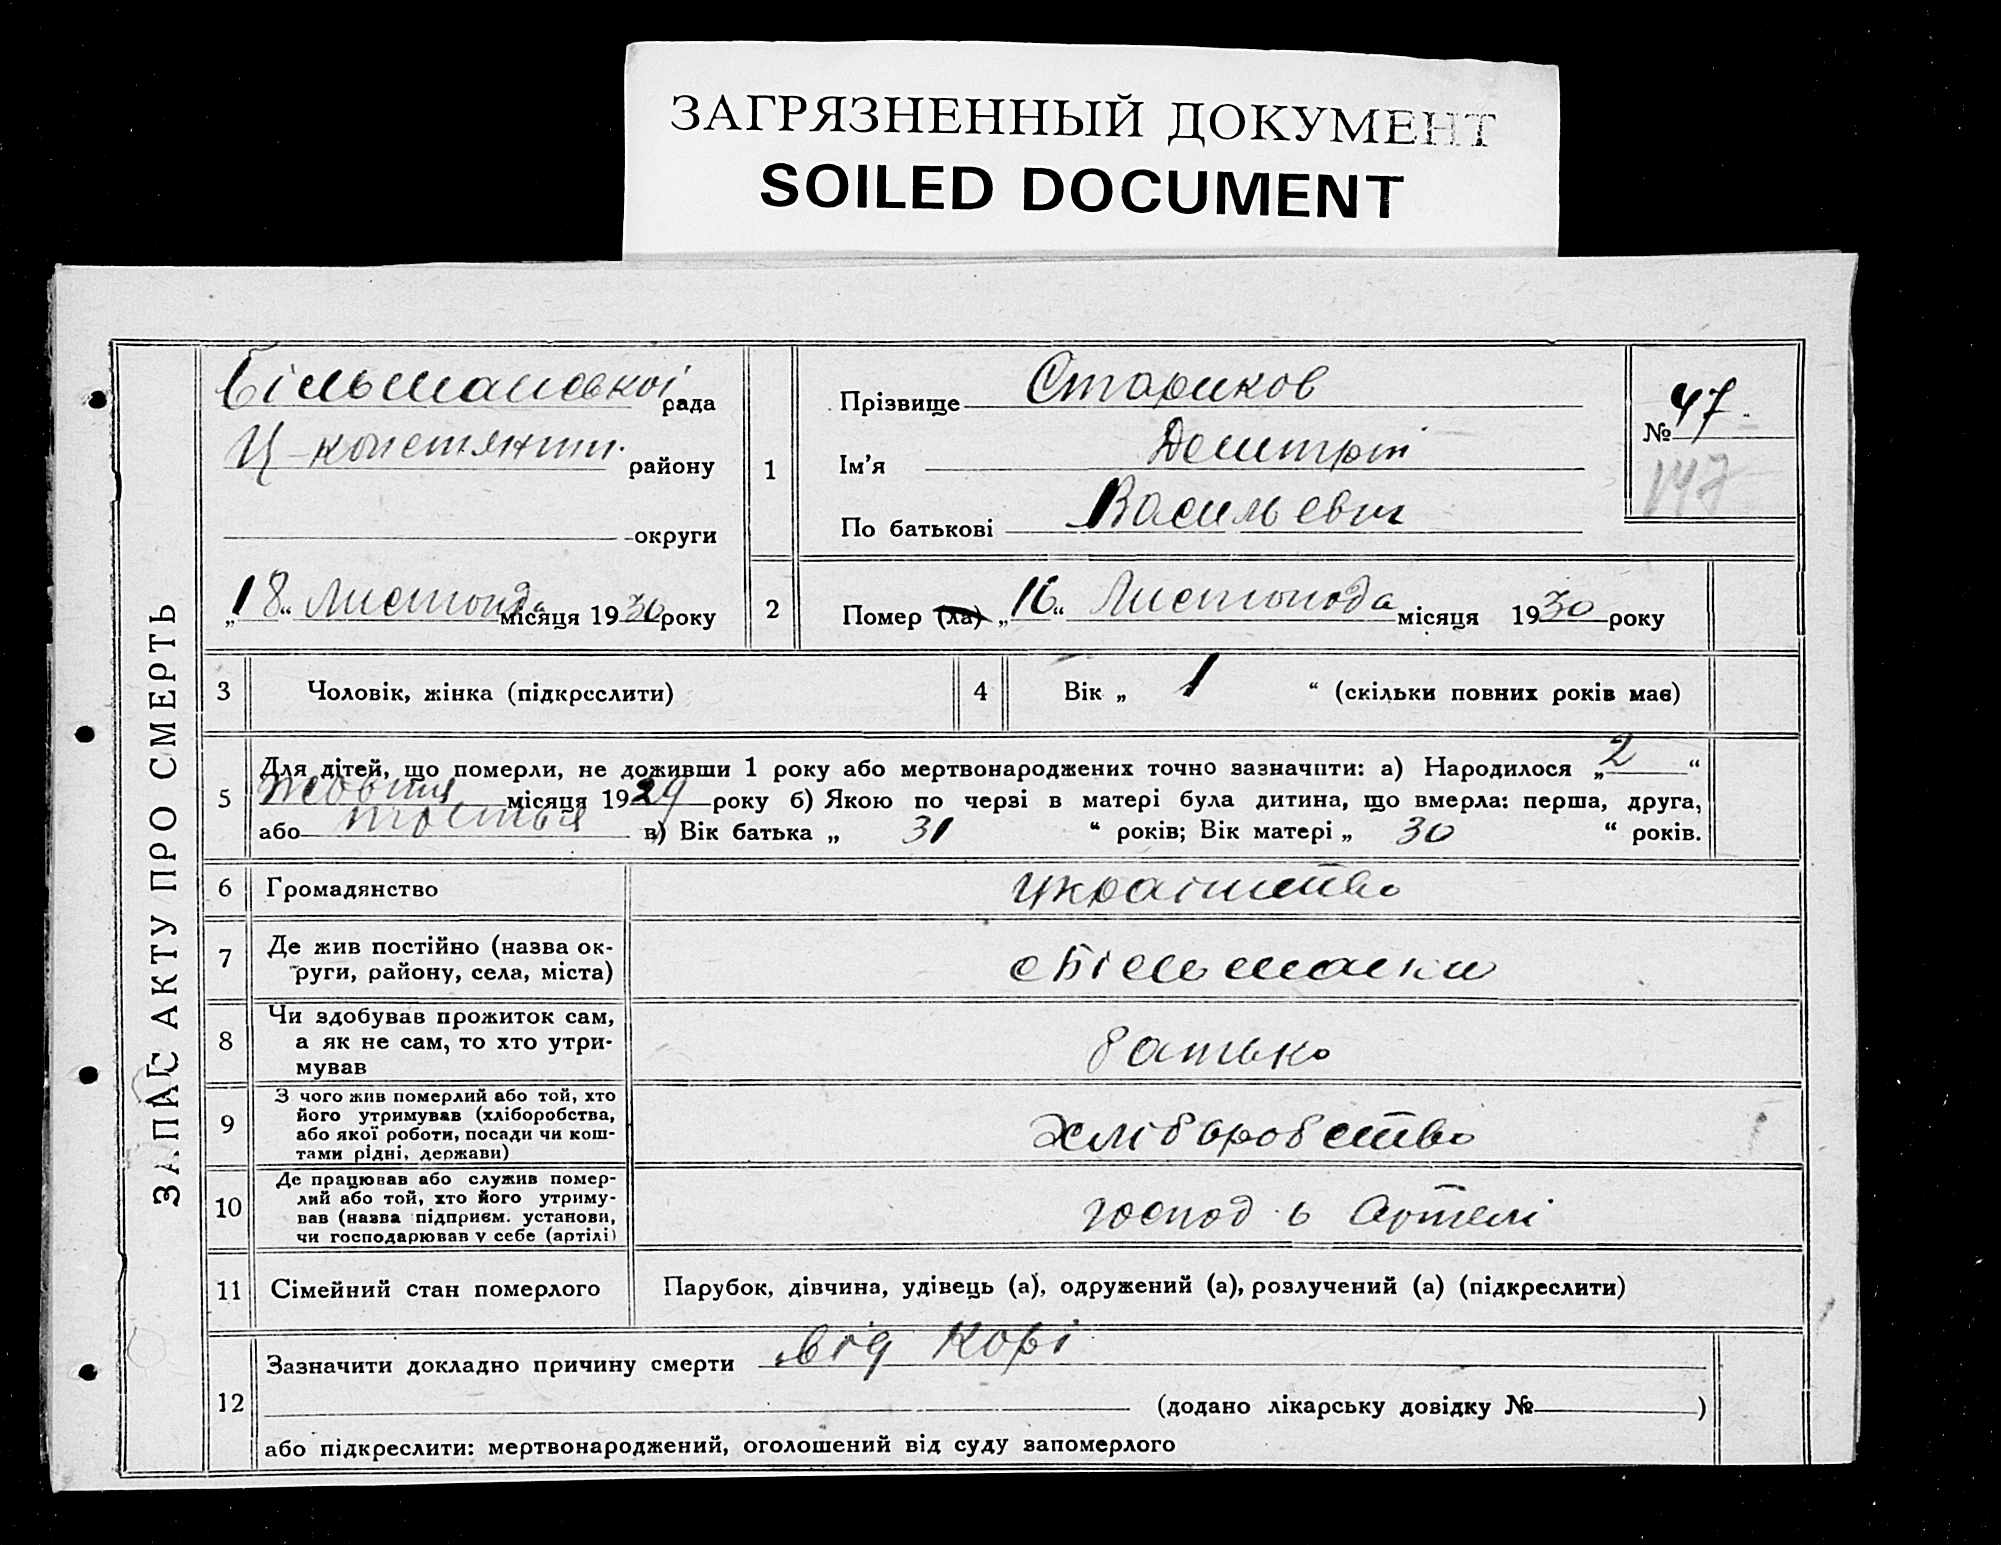 ЗАГРЯЗНЕННЫЙ ДОКУМЕНТ
SOILED DOCUMENT
ЗАПАС АКТУ ПРО СМЕРТЬ
Більманської рада
району
округи
„18“ Листопада місяця 1930 року
1
Прізвище Стариков
Ім’я Дмитрій
По батькові Васильевич
№ 47
147
2
Помер (ла) „16“ Листопода місяця 1930 року
3 Чоловік, жінка (підкреслити)
4 Вік „ 1 “ (скільки повних років має)
5
Для дітей, що померли, не доживши 1 року або мертвонароджених точно зазначити: а) Народилося „2“
Жовтня місяця 1929 року б) Якою по черзі в матері була дитина, що вмерла: перша, друга,
або третья в) Вік батька „ 31 “ років; Вік матері „ 30 “ років.
6 Громадянство
7
Де жив постійно (назва ок-
руги, району, села, міста)
с Більманки
8
Чи здобував прожиток сам,
а як не сам, то хто утри-
мував
батько
9
З чого жив померлий або той, хто
його утримував (хліборобства,
або якої роботи, посади чи кош-
тами рідні, держави)
хліборобство
10
Де працював або служив помер-
лий або той, хто його утриму-
вав (назва підприєм. установи,
чи господарював у себе (артілі)
господ в Артелі
11 Сімейний стан померлого
Парубок, дівчина, удівець (а), одружений (а), розлучений (а) (підкреслити)
12
Зазначити докладно причину смерти від Корі
(додано лікарську довідку № )
або підкреслити: мертвонароджений, оголошений від суду запомерлого